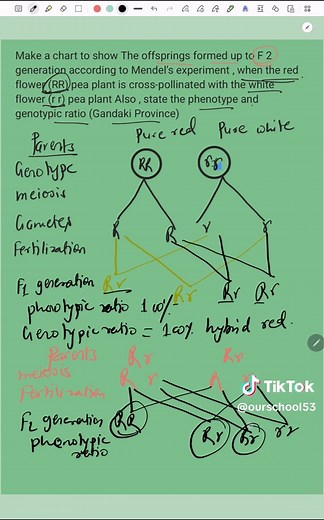 Make a chart to show The offsprings formed up to F 2
generation according to Mendel's experiment , when the red
flower (RR) pea plant is cross-pollinated with the white
flower (r r ) pea plant Also , state the phenotype and
genotypic ratio (Gandaki Province)
Parents Pure red Pure white
Genotype RR rr
meiosis
Gametes R R r r
Fertilization
F1 generation Rr Rr Rr Rr
phenotypic ratio 100%
Genotypic ratio = 100% hybrid red.
Parents Rr Rr
meiosis R r R r
Fertilization
TikTok
@ourschool53
F2 generation RR Rr Rr rr
phenotypic
ratio